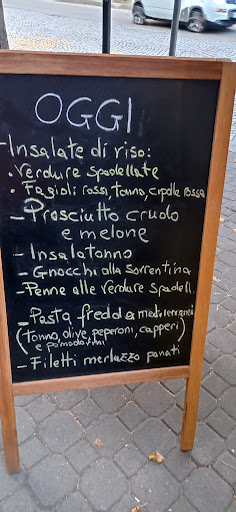 OGGI
- Insalate di riso:
• Verdure spadellate
• Fagioli rossi, tonno, cipolle rossa
- Prosciutto crudo
e melone
- Insalatonno
- Gnocchi alla Sorrentina
- Penne alle verdure spadell.
- Pasta fredda mediterranea
(Tonno, olive, peperoni, capperi)
e pomodorini
- Filetti merluzzo panati